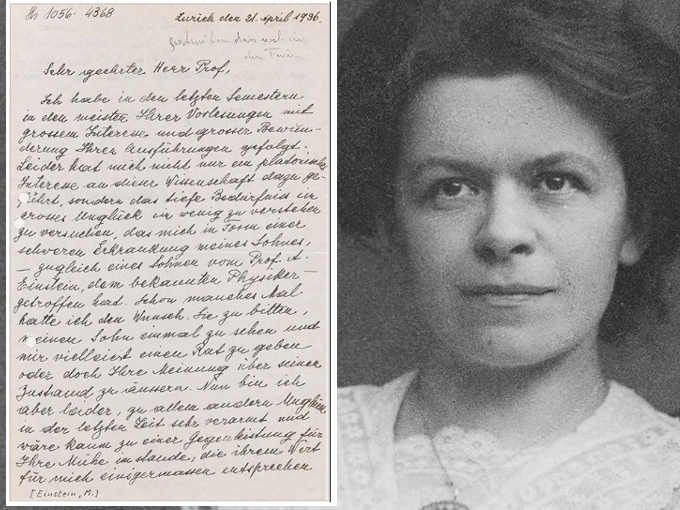 Hs 1056: 4368
Zurich den 21. April 1936.
Sehr geehrter Herr Prof,
Ich habe in den letzten Semestern
in den meisten Ihrer Vorlesungen mit
grossem Interesse und grosser Bewun-
derung Ihrer Ausführungen gefolgt.
Leider hat mich nicht nur ein platonisches
Interesse an dieser Wissenschaft dazu ge-
führt, sondern das tiefe Bedürfniss ein
grosses Unglück ein wenig zu verstehen
zu versuchen, das mich in Form einer
schweren Erkrankung meines Sohnes,
— zugleich eines Sohnes vom Prof. A.
Einstein, dem bekannten Physiker —
getroffen hat. Schon manches Mal
hatte ich den Wunsch, Sie zu bitten,
meinen Sohn einmal zu sehen und
mir vielleicht einen Rat zu geben
oder doch Ihre Meinung über seinen
Zustand zu äussern. Nun bin ich
aber leider, zu allem andern Unglück
in der letzten Zeit sehr verarmt und
wäre kaum zu einer Gegenleistung für
Ihre Mühe imstande, die ihrem Wert
für mich einigermassen entsprechen
[Einstein, M.]